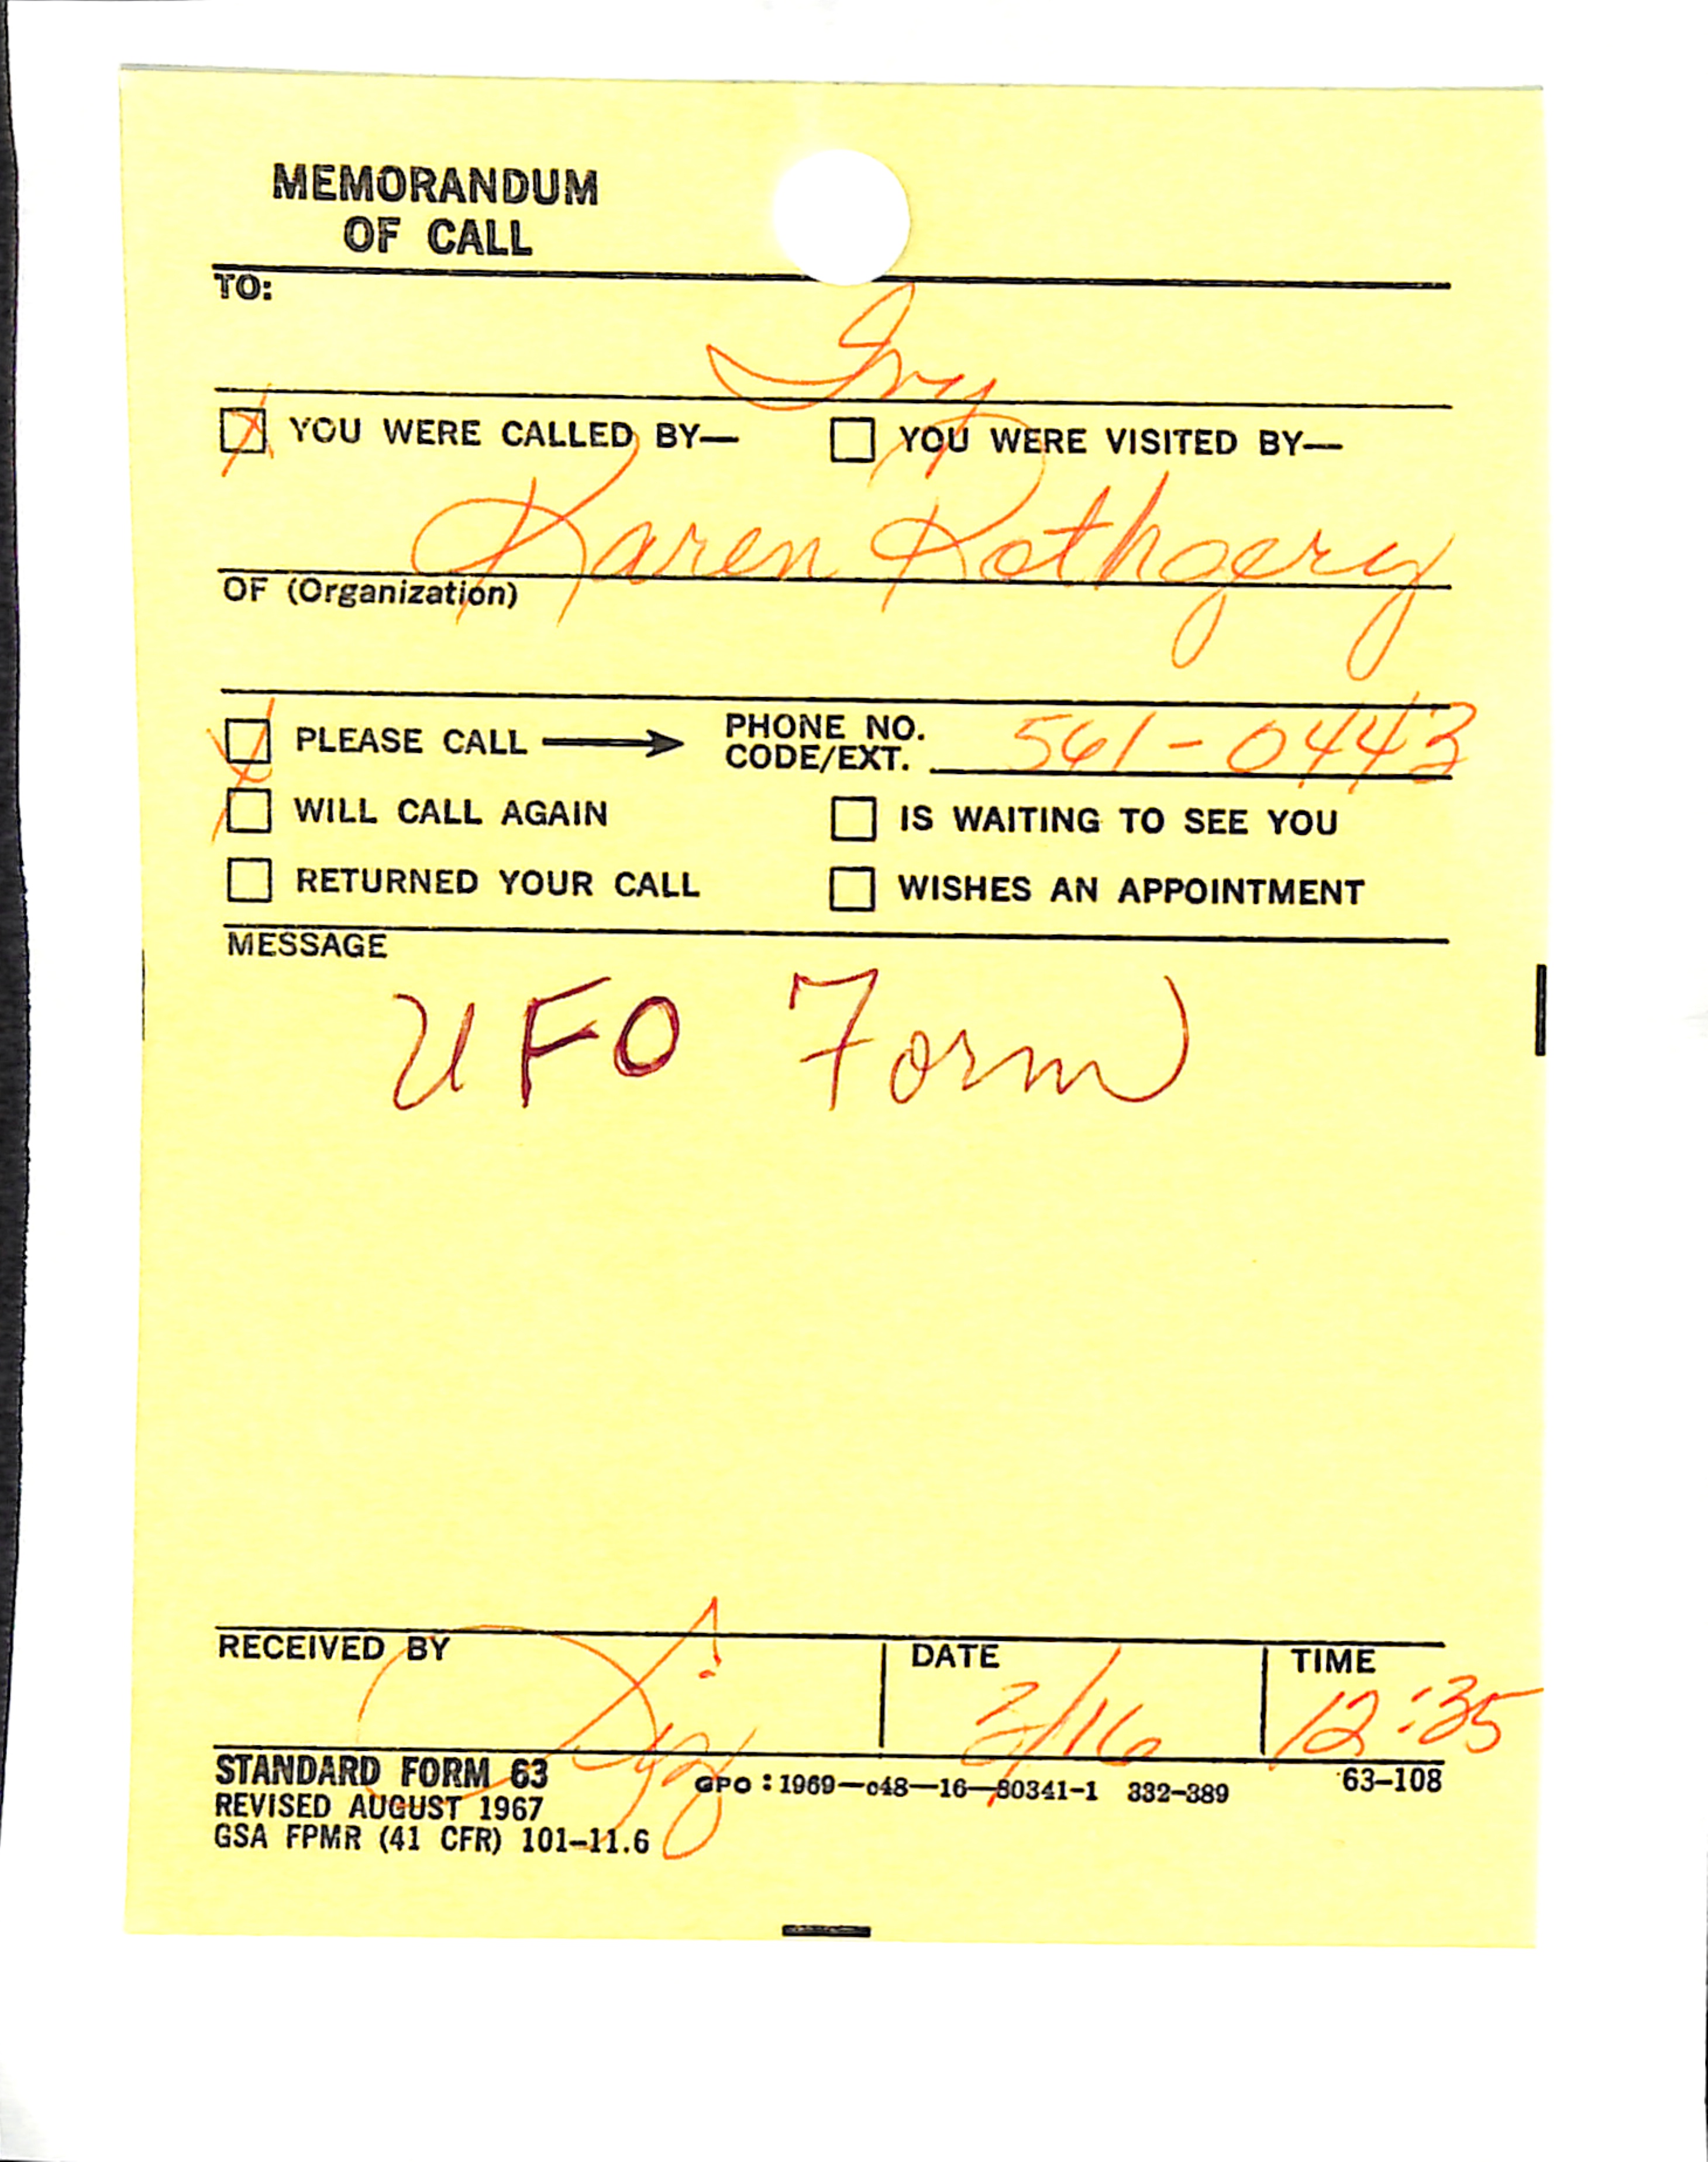 MEMORANDUM
OF CALL
TO:
Ivy
YOU WERE CALLED BY— YOU WERE VISITED BY—
Karen Rothgery
OF (Organization)
PLEASE CALL → PHONE NO. CODE/EXT. 561-0443
WILL CALL AGAIN IS WAITING TO SEE YOU
RETURNED YOUR CALL WISHES AN APPOINTMENT
MESSAGE
UFO Form
RECEIVED BY DATE TIME
3/16 12:35
STANDARD FORM 63 GPO : 1969—c48—16—80341-1 332-389 63-108
REVISED AUGUST 1967
GSA FPMR (41 CFR) 101-11.6